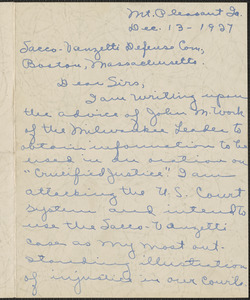 Mt. Pleasant Ia.
Dec. 13 - 1927
Sacco-Vanzetti Defense Com,
Boston, Massachusetts.
Dear Sirs,
I am writing upon
the advice of John M. Work
of the Milwaukee Leader to
obtain information to be
used in an oration on
"Crucified Justice". I am
attacking the U.S. Court
system and intend to
use the Sacco-Vanzetti
case as my most out-
standing illustration
of injustice in our courts